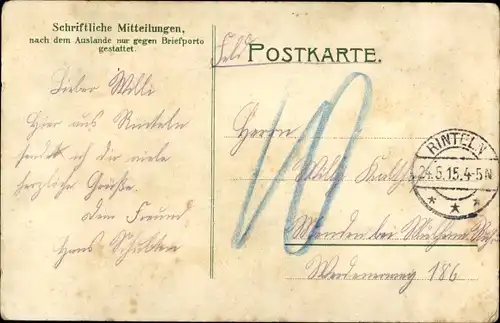 Schriftliche Mitteilungen,
nach dem Auslande nur gegen Briefporto
gestattet.
Feld POSTKARTE.
Lieber Willi
Hier aus Rinteln
sendet ich dir viele
herzliche Grüße.
Dein Freund
Hans
10
RINTELN
24.5.15.4-5N
* * *
Herrn
Willi
bei Mülheim Ruhr
186